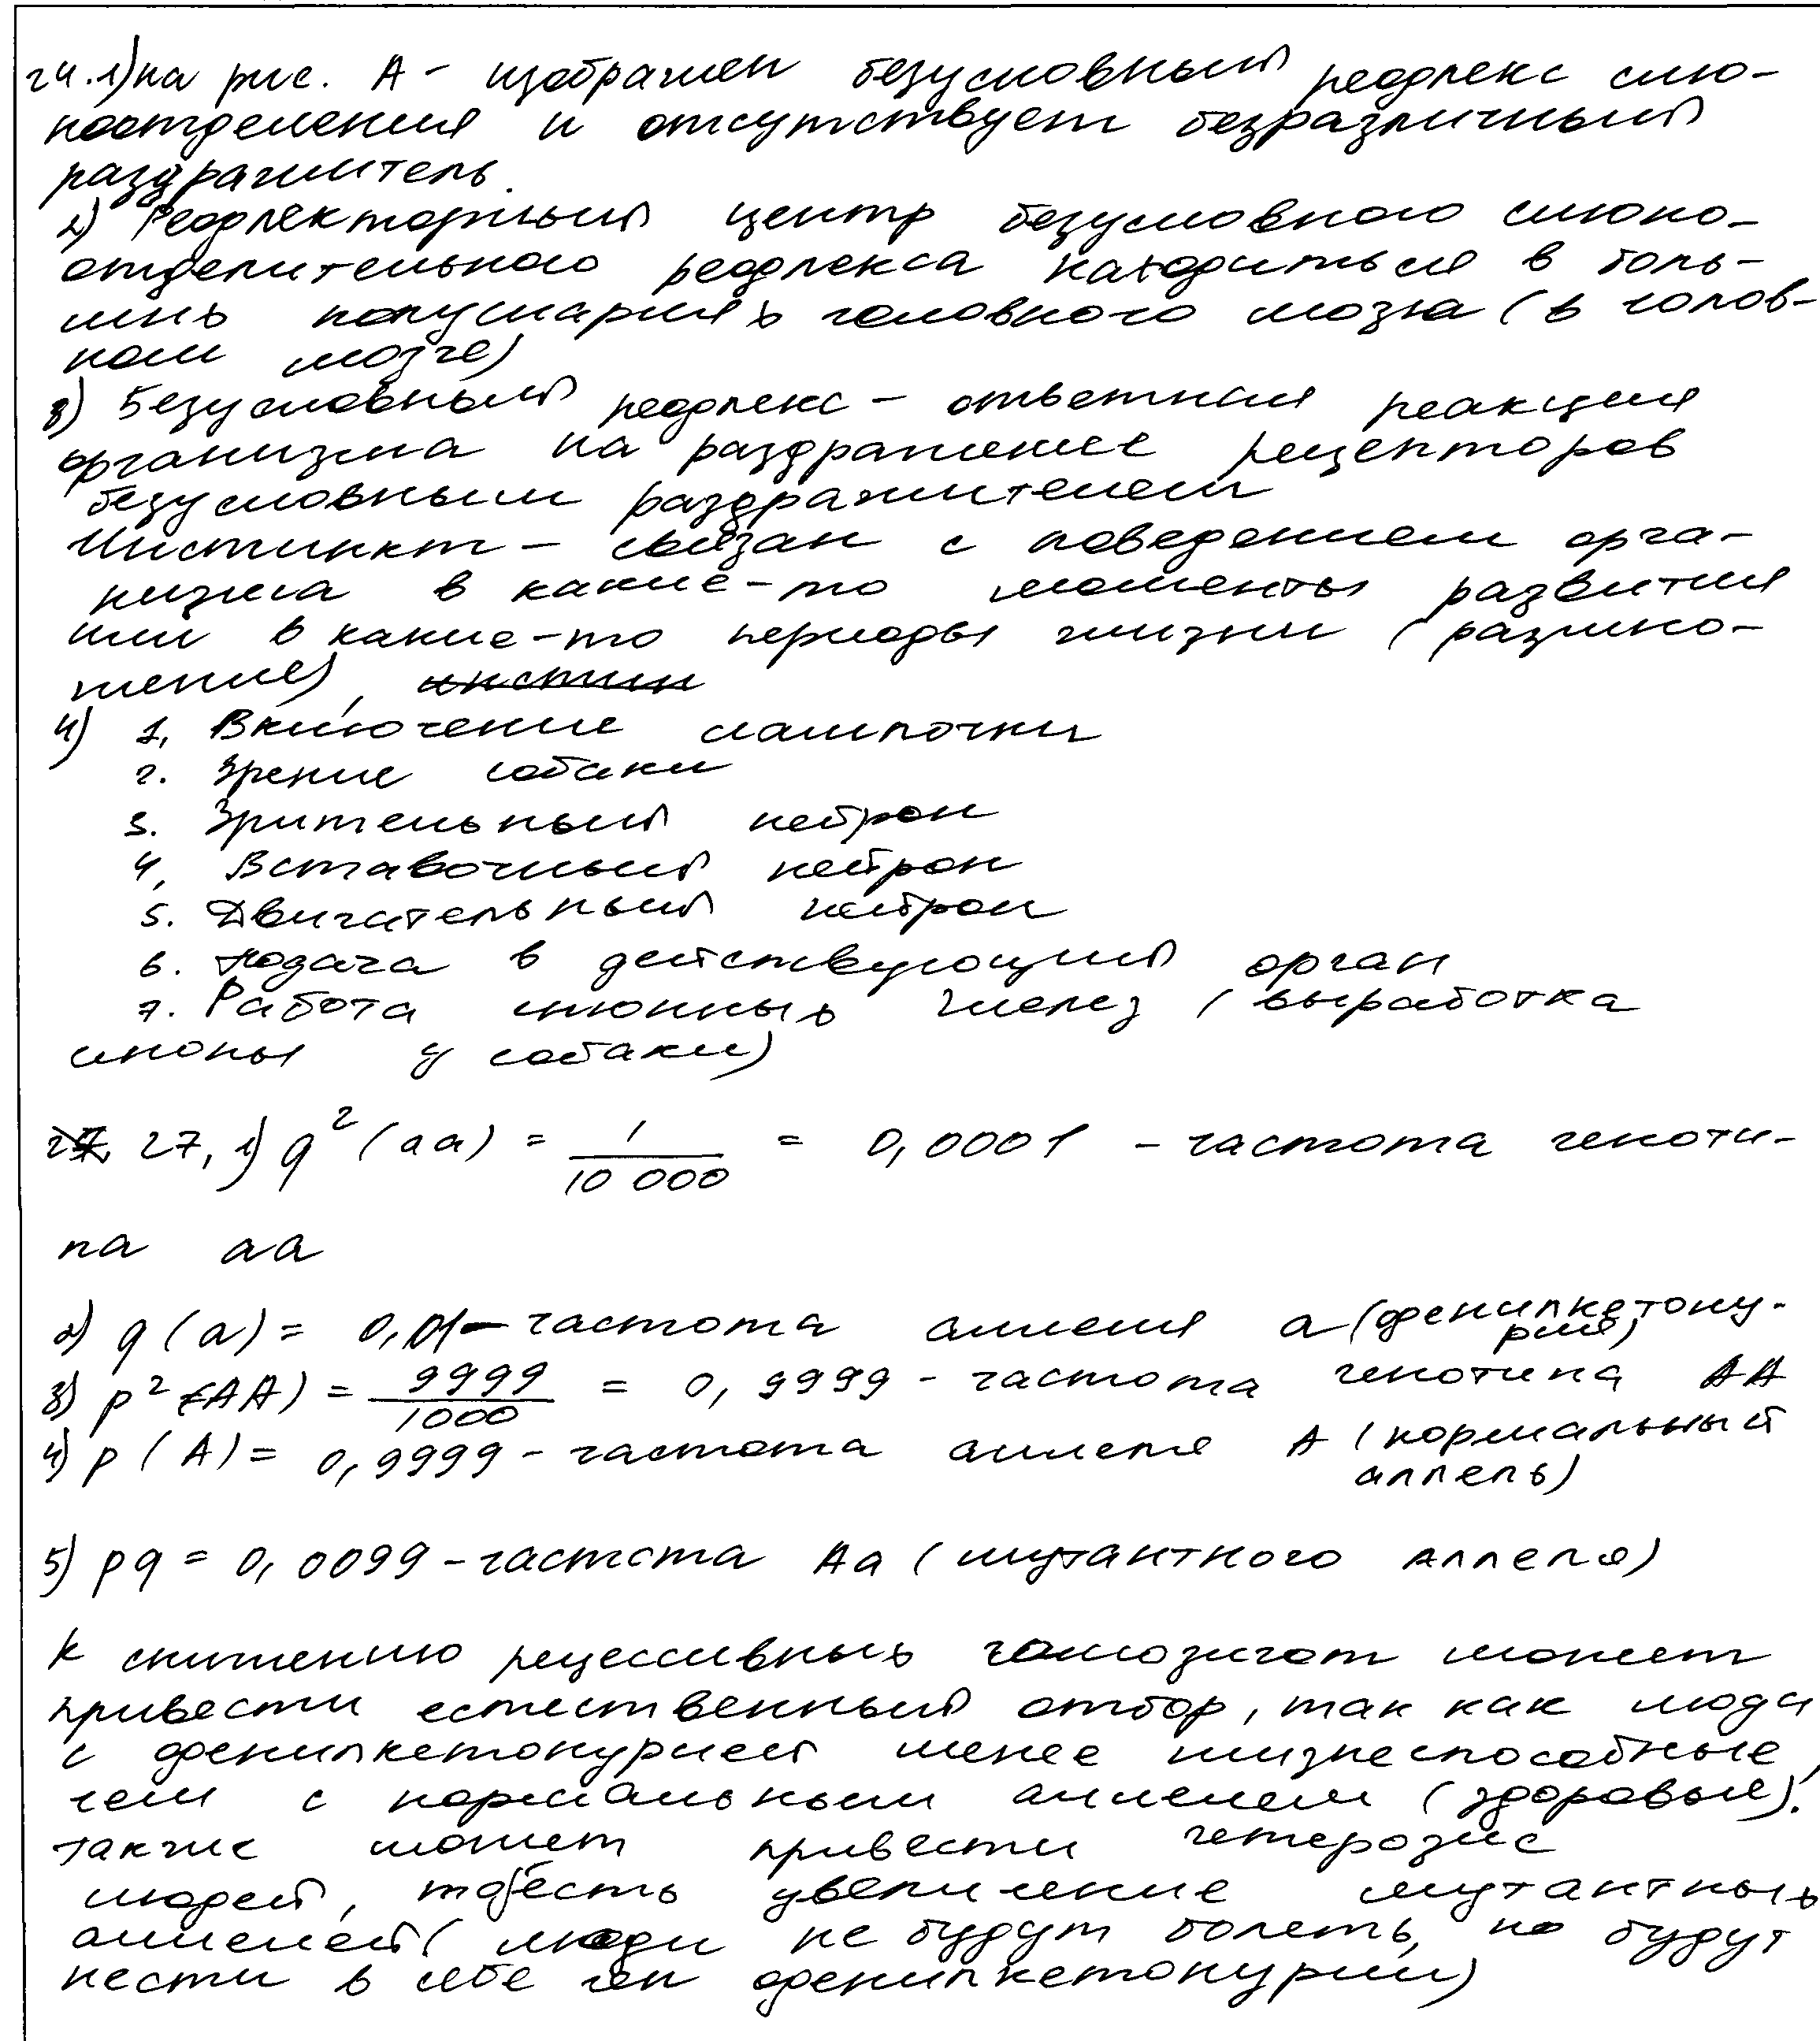 24. 1) на рис. А - изображен безусловный рефлекс слю-
ноотделения и отсутствует безразличный
раздражитель.
2) Рефлекторный центр безусловного слюно-
отделительного рефлекса находиться в боль-
ших полушариях головного мозга (в голов-
ном мозге)
3) Безусловный рефлекс - ответная реакция
организма на раздражение рецепторов
безусловным раздражителем
Инстинкт - связан с поведением орга-
низма в какие-то моменты развития
или в какие-то периоды жизни (размно-
жение), инстин
4) 1. Включение лампочки
2. Зрение собаки
3. Зрительный нейрон
4. Вставочный нейрон
5. Двигательный нейрон
6. Подача в действующий орган
7. Работа слюнных желез (выработка
слюны у собаки)
27. 1) q² (aa) = 1/10 000 = 0,0001 - частота геноти-
па аа
2) q (a) = 0,01 - частота аллеля а (фенилкетону-
рия)
3) p² (AA) = 9999/1000 = 0,9999 - частота генотипа АА
4) p (A) = 0,9999 - частота аллеля А (нормальный
аллель)
5) pq = 0,0099 - частота Аа (мутантного аллеля)
К снижению рецессивных гомозигот может
привести естественный отбор, так как люди
с фенилкетонурией менее жизнеспособные,
чем с нормальным аллелем (здоровые).
Также может привести гетерозис
людей, тоесть увеличение мутантных
аллелей (люди не будут болеть, но будут
нести в себе ген фенилкетонурии)